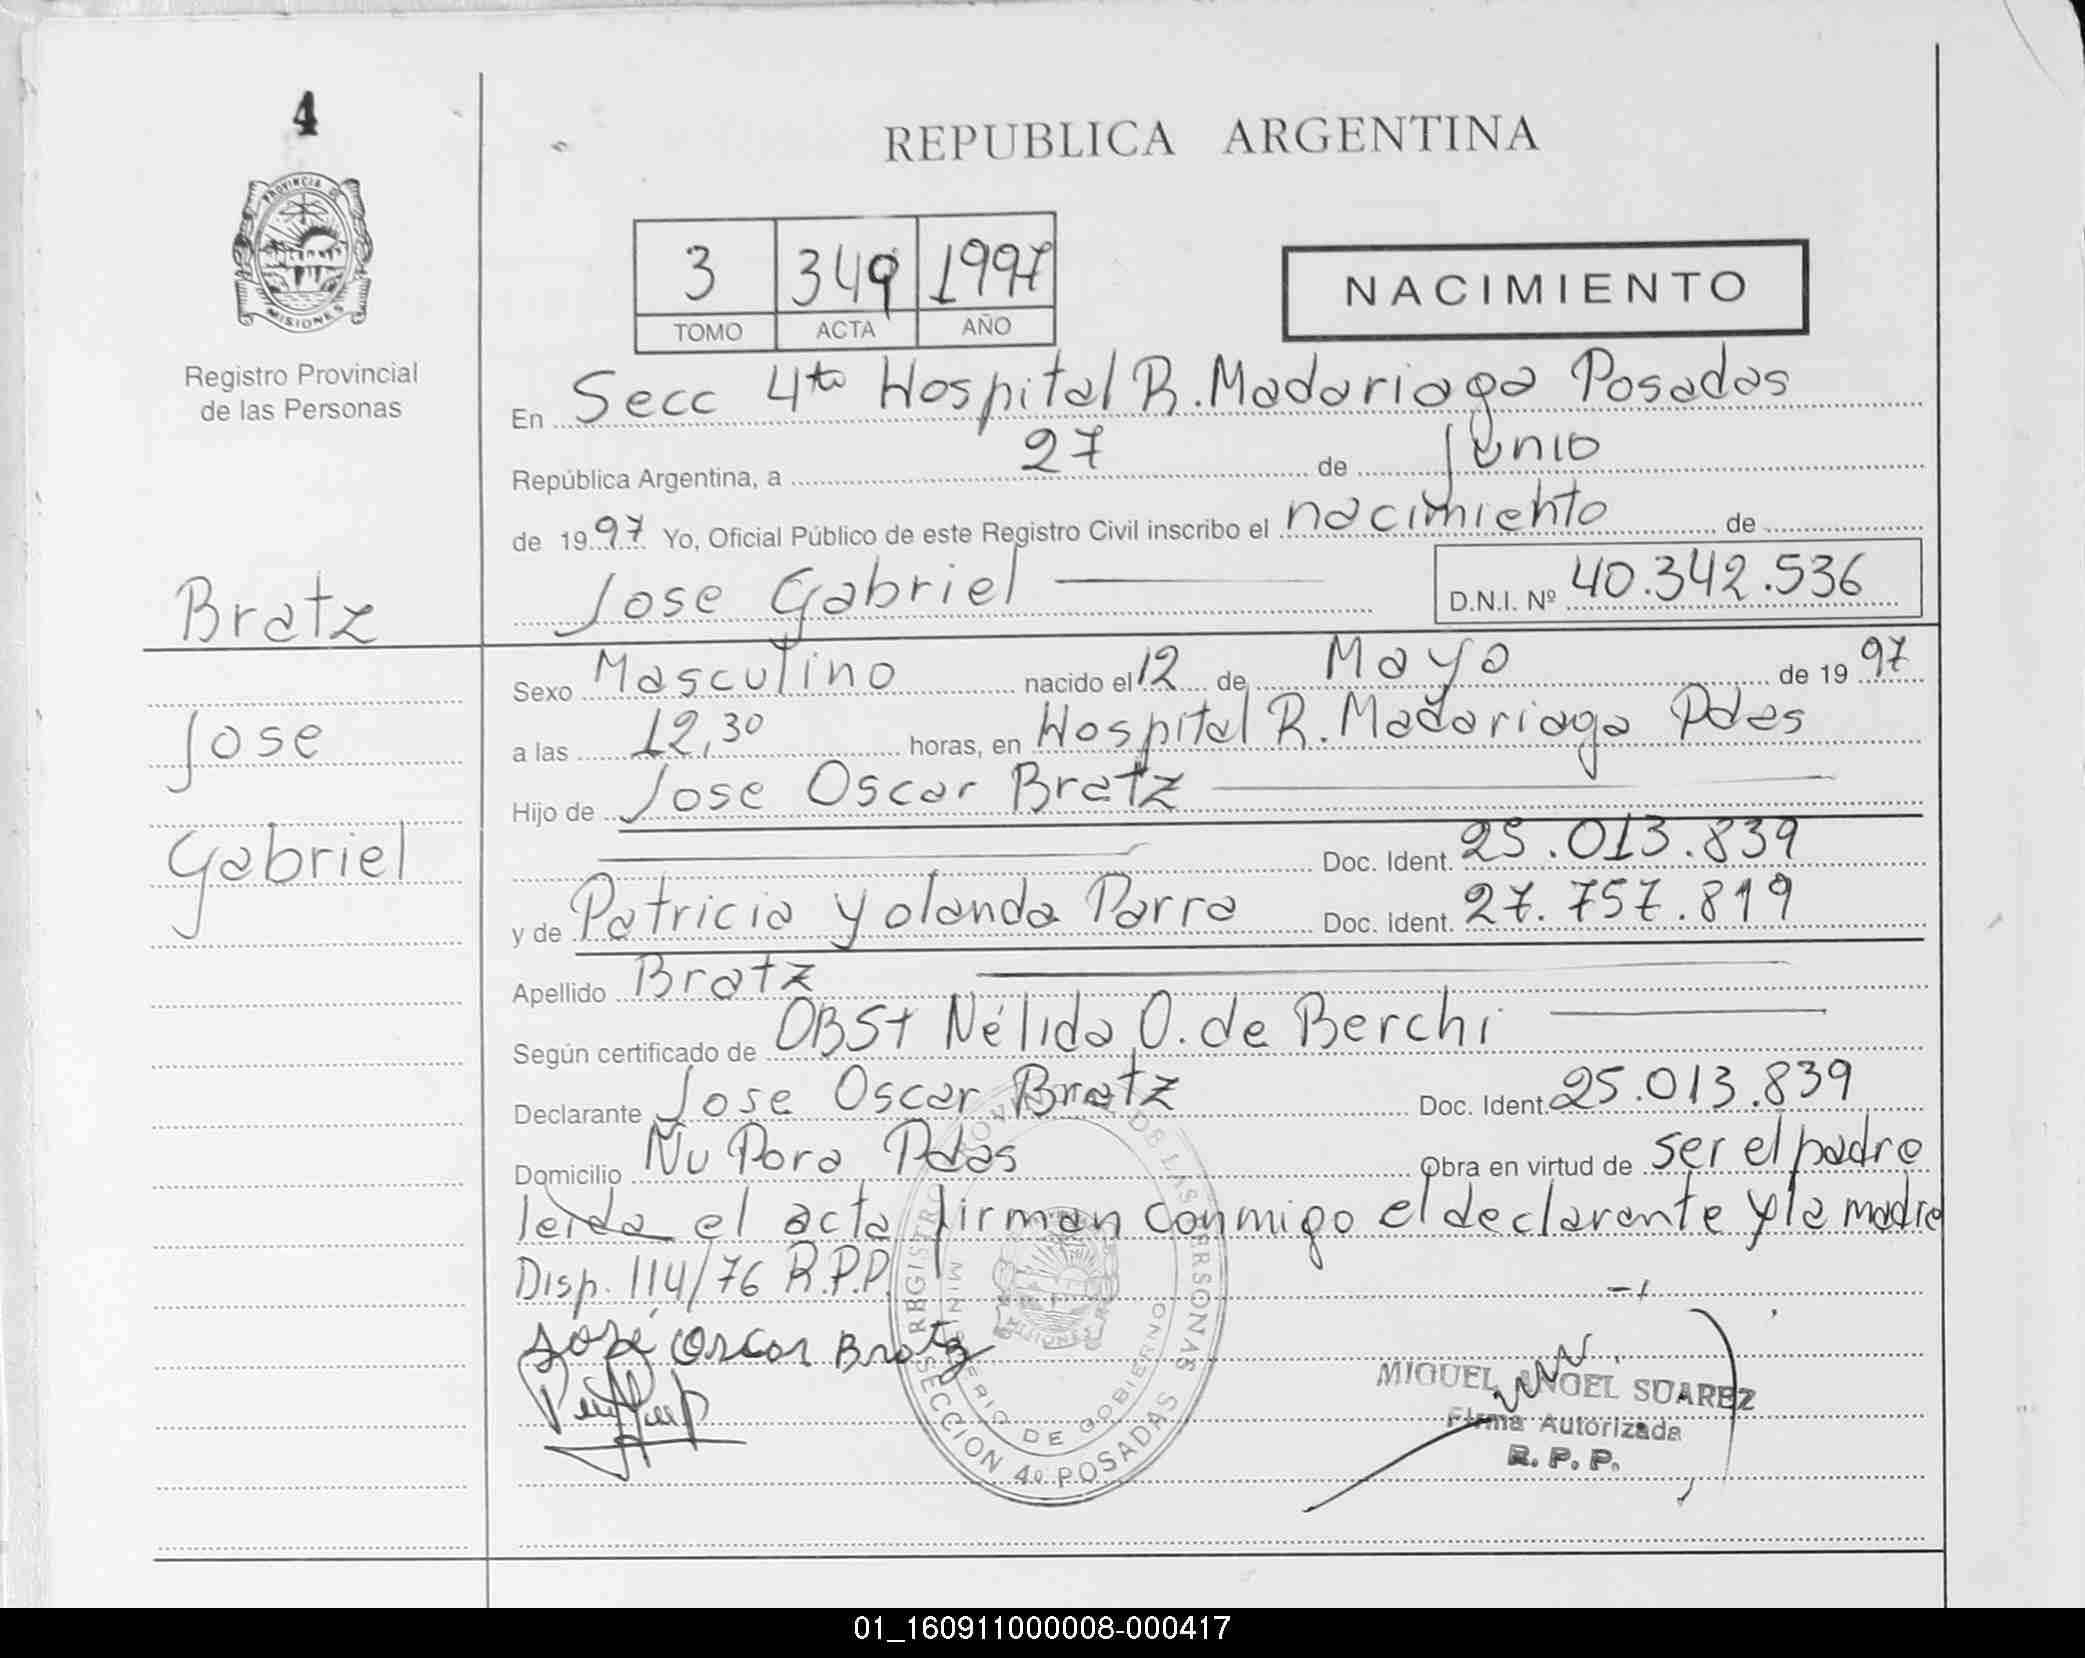 4
REPUBLICA ARGENTINA
PROVINCIA DE
MISIONES
Registro Provincial
de las Personas
3 349 1997
TOMO ACTA AÑO
NACIMIENTO
En Secc 4ta Hospital R. Madariaga Posadas
República Argentina, a 27 de Junio
de 1997 Yo, Oficial Público de este Registro Civil inscribo el nacimiento de
Jose Gabriel D.N.I. Nº 40.342.536
Bratz
Jose
Gabriel
Sexo Masculino nacido el 12 de Mayo de 1997
a las 12,30 horas, en Hospital R. Madariaga Pdas
Hijo de Jose Oscar Bratz
Doc. Ident. 25.013.839
y de Patricia Yolanda Parra Doc. Ident. 27.757.819
Apellido Bratz
Según certificado de OBST Nélida O. de Berchi
Declarante Jose Oscar Bratz Doc. Ident. 25.013.839
Domicilio Ñu Pora Pdas Obra en virtud de ser el padre
leida el acta firman conmigo el declarante y la madre
Disp. 114/76 R.P.P.
José Oscar Bratz
REGISTRO PROVINCIAL DE LAS PERSONAS
MINISTERIO DE GOBIERNO
MISIONES
SECCION 4º POSADAS
MIGUEL ANGEL SUAREZ
Firma Autorizada
R. P. P.
01_160911000008-000417